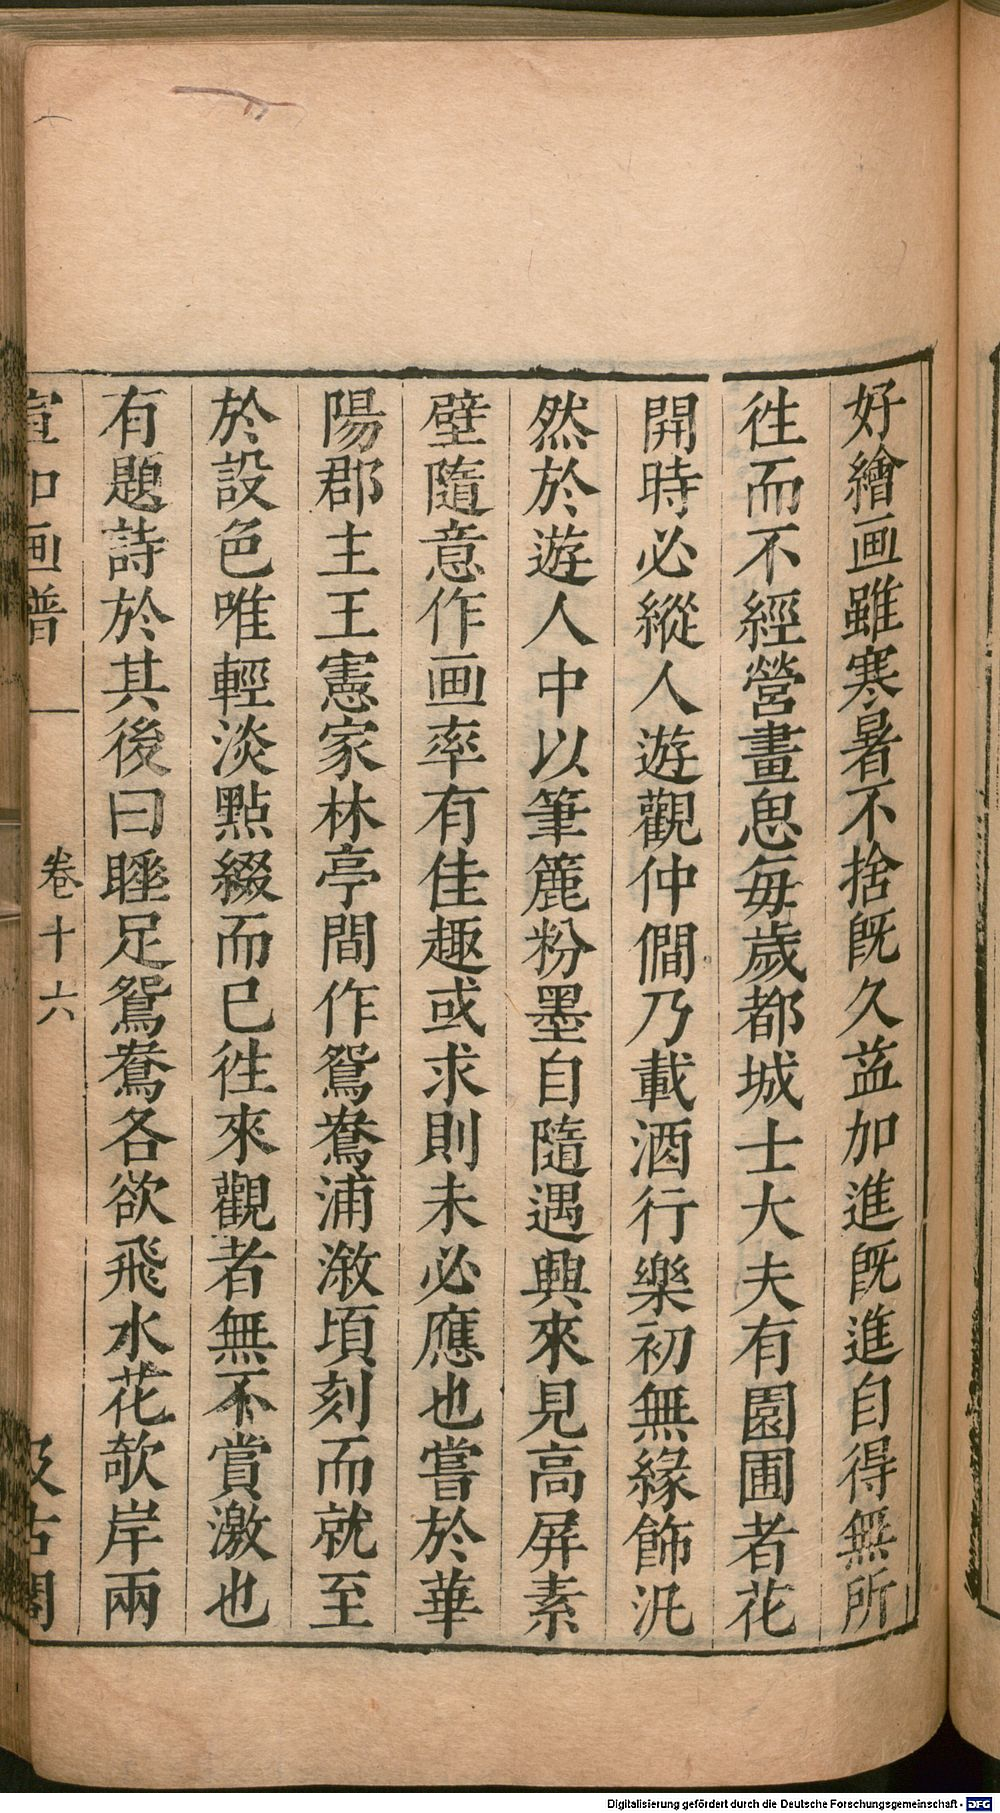 好繪画雖寒暑不捨旣久益加進旣進自得無所
徃而不經營畫思毎歲都城士大夫有園圃者花
開時必縱人遊觀仲僩乃載酒行樂初無緣飾汎
然於遊人中以筆簏粉墨自隨遇興來見高屏素
壁隨意作画率有佳趣或求則未必應也嘗於華
陽郡主王憲家林亭間作鴛鴦浦漵頃刻而就至
於設色唯輕淡點綴而已徃來觀者無不賞激也
有題詩於其後曰睡足鴛鴦各欲飛水花欹岸兩
宣和画譜
卷十六
汲古閣
Digitalisierung gefördert durch die Deutsche Forschungsgemeinschaft - DFG